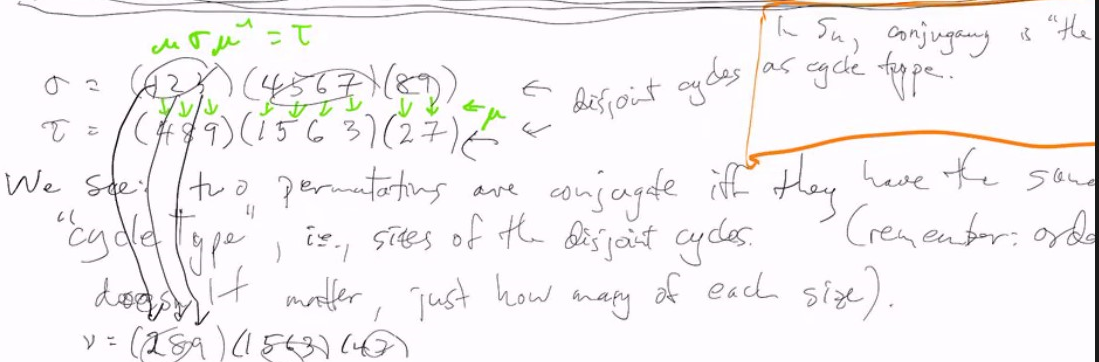 μ σ μ⁻¹ = τ
σ = (1 2 3)(4 5 6 7)(8 9) ← disjoint cycles
τ = (4 8 9)(1 5 6 3)(2 7) ← μ
In Sn, conjugacy is "the
as cycle type.
We see: two permutations are conjugate iff they have the same
"cycle type", i.e., sizes of the disjoint cycles. (remember: orde
doesn't matter, just how many of each size).
ν = (2 8 9)(1 5 6 3)(4 7)